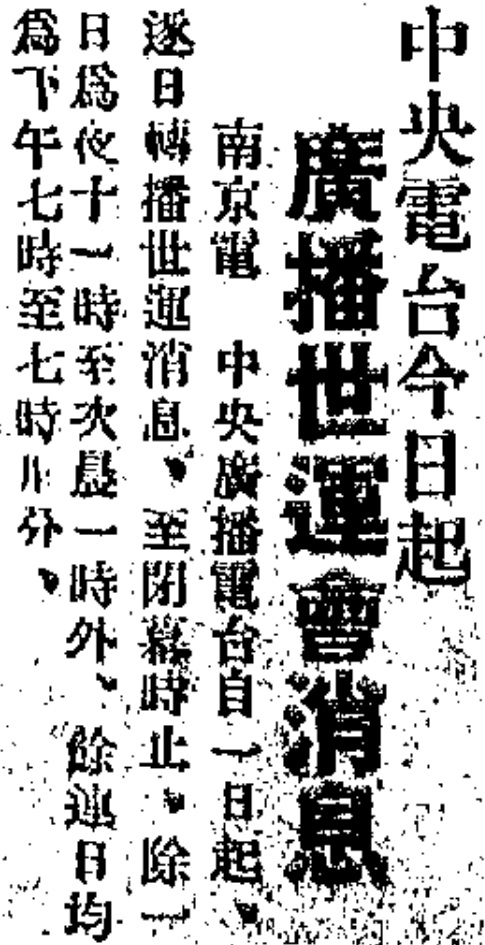 中央電台今日起
廣播世運會消息
南京電　中央廣播電台自一日起、
逐日轉播世運消息、至閉幕時止、除一
日為夜十一時至次晨一時外、餘連日均
為下午七時至七時卅分、